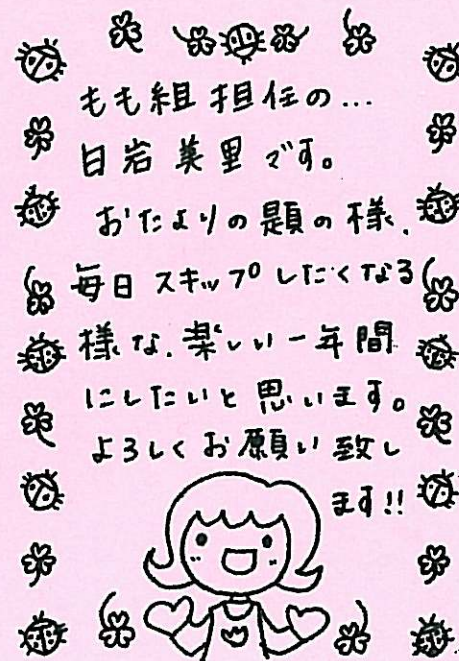 もも組 担任の…
白岩 美里です。
おたよりの題の様、
毎日 スキップしたくなる
様な、楽しい一年間
にしたいと思います。
よろしくお願い致し
ます!!